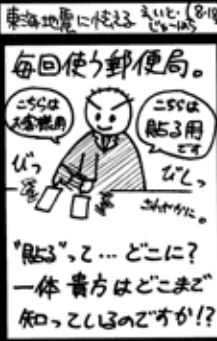 東海地震に怯える えいと・じゃーはち (8-18)
毎回使う郵便局。
こちらは
お客様用
こちらは
貼る用
です
びっ
びしっ
さわやかに。
"貼る"って…どこに?
一体貴方はどこまで
知っているのですか!?